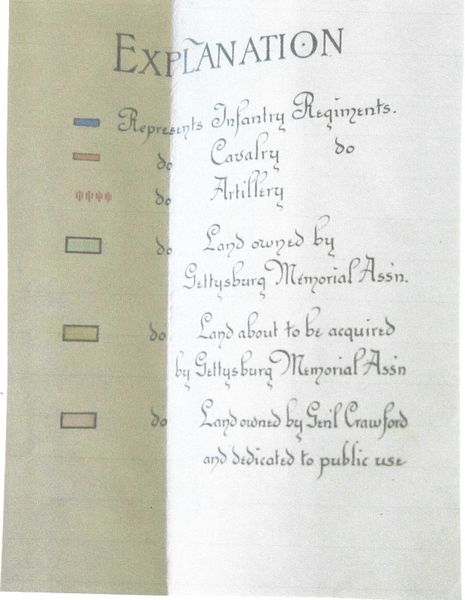 EXPLANATION
Represents Infantry Regiments.
do Cavalry do
do Artillery
do Land owned by
Gettysburg Memorial Ass'n.
do Land about to be acquired
by Gettysburg Memorial Ass'n
do Land owned by Gen'l Crawford
and dedicated to public use